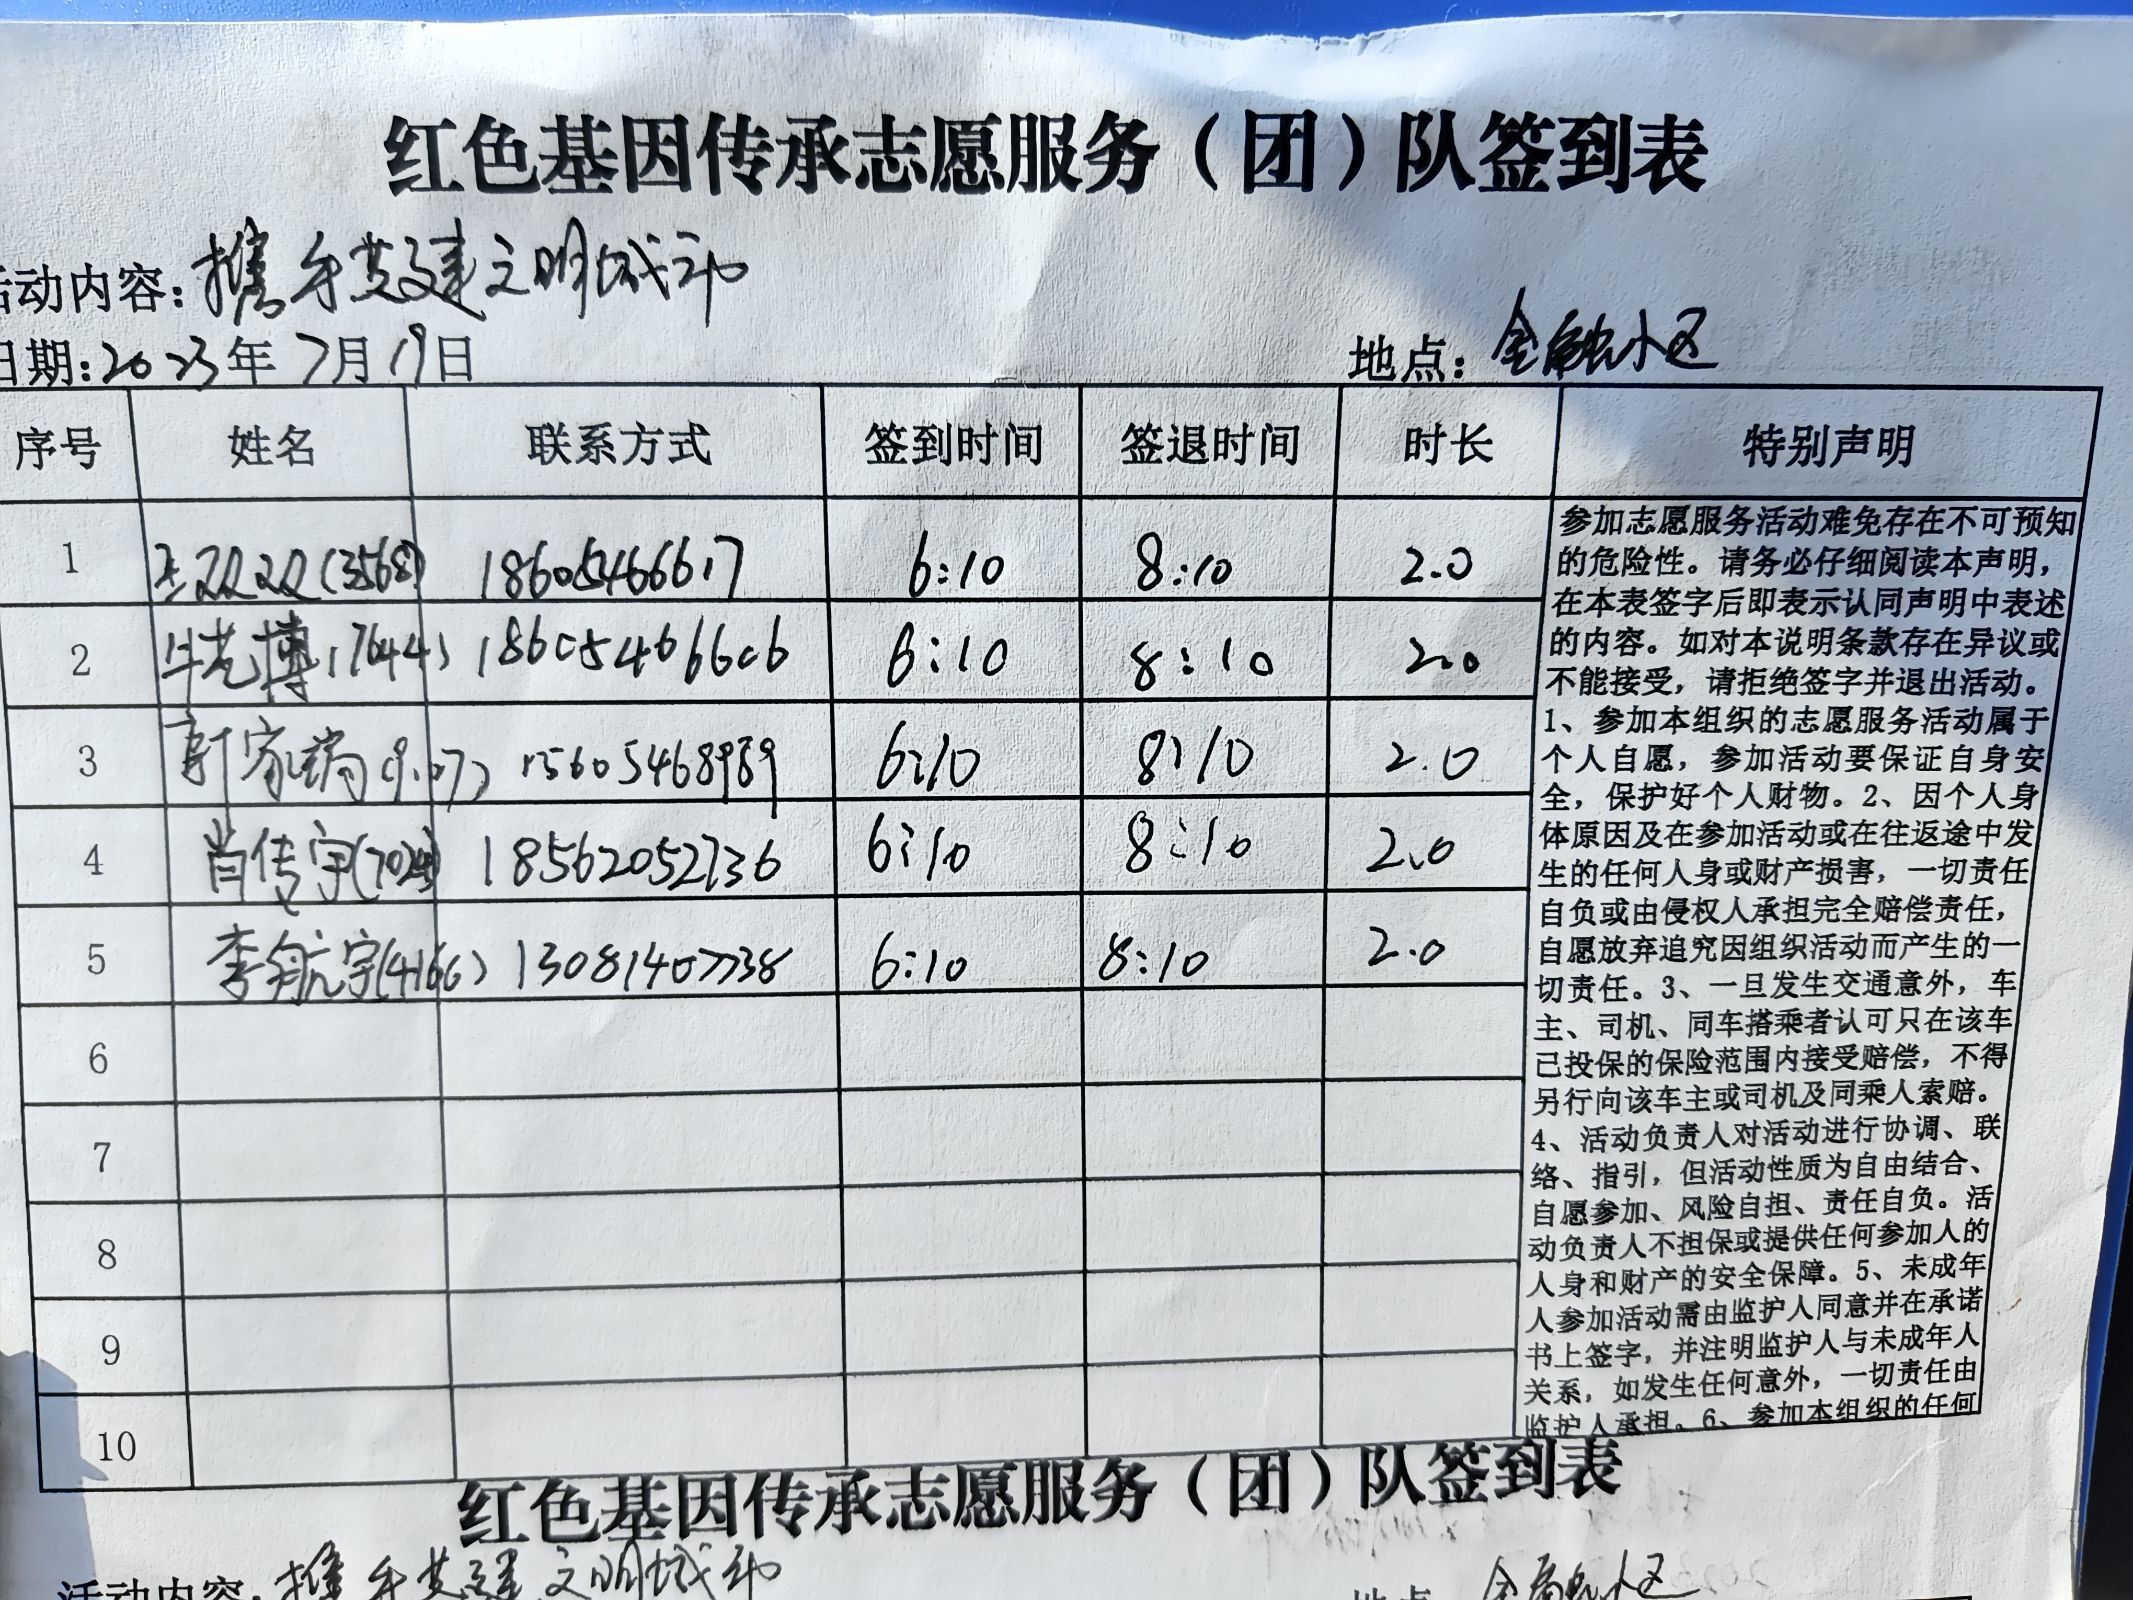 红色基因传承志愿服务（团）队签到表
活动内容：携手共建文明城市
日期：2023年7月19日 地点：金融小区
序号 姓名 联系方式 签到时间 签退时间 时长 特别声明
1 王双双(3568) 18605466617 6:10 8:10 2.0
2 博(7644) 18605466606 6:10 8:10 2.0
3 靳家瑞 15605468989 6:10 8:10 2.0
4 肖传宇 18562052736 6:10 8:10 2.0
5 李航宇(4166) 13081407738 6:10 8:10 2.0
6
7
8
9
10
参加志愿服务活动难免存在不可预知
的危险性。请务必仔细阅读本声明，
在本表签字后即表示认同声明中表述
的内容。如对本说明条款存在异议或
不能接受，请拒绝签字并退出活动。
1、参加本组织的志愿服务活动属于
个人自愿，参加活动要保证自身安
全，保护好个人财物。2、因个人身
体原因及在参加活动或在往返途中发
生的任何人身或财产损害，一切责任
自负或由侵权人承担完全赔偿责任，
自愿放弃追究因组织活动而产生的一
切责任。3、一旦发生交通意外，车
主、司机、同车搭乘者认可只在该车
已投保的保险范围内接受赔偿，不得
另行向该车主或司机及同乘人索赔。
4、活动负责人对活动进行协调、联
络、指引，但活动性质为自由结合、
自愿参加、风险自担、责任自负。活
动负责人不担保或提供任何参加人的
人身和财产的安全保障。5、未成年
人参加活动需由监护人同意并在承诺
书上签字，并注明监护人与未成年人
关系，如发生任何意外，一切责任由
监护人承担。6、参加本组织的任何
红色基因传承志愿服务（团）队签到表
活动内容：携手共建文明城市 地点：金融小区